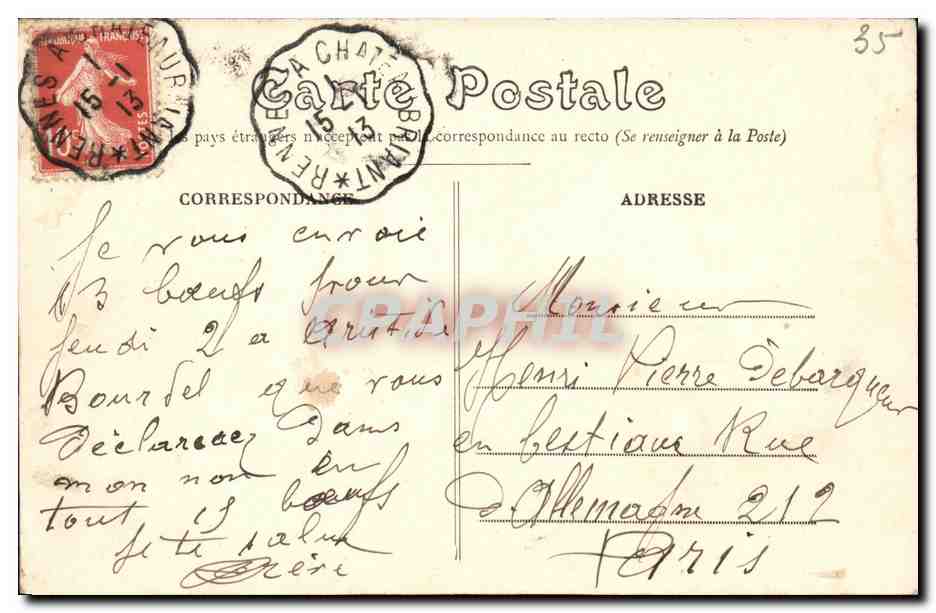 35
RENNES A CHATEAUBRIANT *
15 - 1
13
RENNES A CHATEAUBRIANT *
15 - 1
13
Carte Postale
pays étrangers n'acceptent pas la correspondance au recto (Se renseigner à la Poste)
CORRESPONDANCE
Je vous envoie
13 bœufs pour
Jeudi 2 a Aristide
Bourdel que vous
Déclarerez Dans
mon nom en
tout 15 bœufs
Je te salue
ADRESSE
Monsieur
Henri Pierre Débarqueur
en bestiaux Rue
D'Allemagne 212
Paris
CPAPHIL